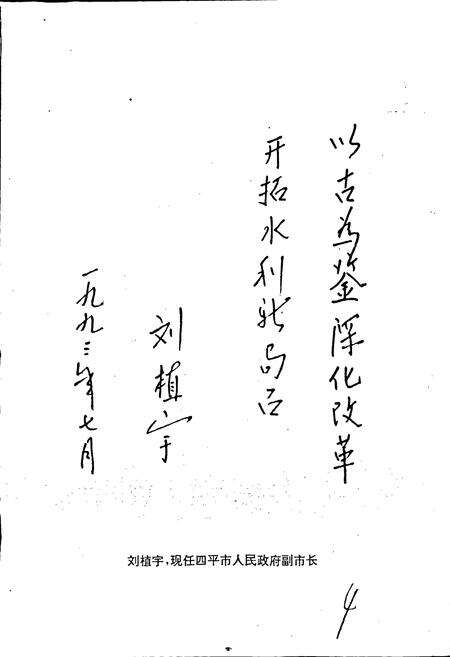 以古为鉴深化改革
开拓水利新局面
刘植宇
一九九三年七月
刘植宇,现任四平市人民政府副市长
4